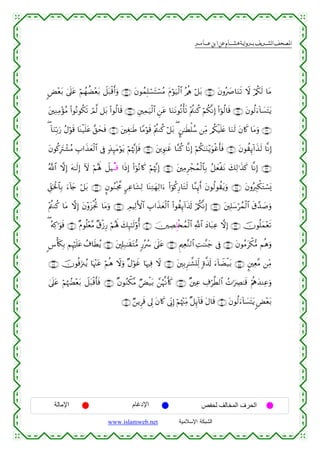 المصحف الشريف برواية هشام عن ابن عامر
مَا لَكُمْ لَا تَنَاصَرُونَ ۝ بَلْ هُمُ ٱلْيَوْمَ مُسْتَسْلِمُونَ ۝ وَأَقْبَلَ بَعْضُهُمْ عَلَىٰ بَعْضٍ
يَتَسَآءَلُونَ ۝ قَالُوٓا۟ إِنَّكُمْ كُنتُمْ تَأْتُونَنَا عَنِ ٱلْيَمِينِ ۝ قَالُوا۟ بَل لَّمْ تَكُونُوا۟ مُؤْمِنِينَ
۝ وَمَا كَانَ لَنَا عَلَيْكُم مِّن سُلْطَٰنٍۭ ۖ بَلْ كُنتُمْ قَوْمًا طَٰغِينَ ۝ فَحَقَّ عَلَيْنَا قَوْلُ رَبِّنَآ ۖ
إِنَّا لَذَآئِقُونَ ۝ فَأَغْوَيْنَٰكُمْ إِنَّا كُنَّا غَٰوِينَ ۝ فَإِنَّهُمْ يَوْمَئِذٍ فِى ٱلْعَذَابِ مُشْتَرِكُونَ
۝ إِنَّا كَذَٰلِكَ نَفْعَلُ بِٱلْمُجْرِمِينَ ۝ إِنَّهُمْ كَانُوٓا۟ إِذَا قِيلَ لَهُمْ لَآ إِلَٰهَ إِلَّا ٱللَّهُ
يَسْتَكْبِرُونَ ۝ وَيَقُولُونَ أَئِنَّا لَتَارِكُوٓا۟ ءَالِهَتِنَا لِشَاعِرٍ مَّجْنُونٍۭ ۝ بَلْ جَآءَ بِٱلْحَقِّ
وَصَدَّقَ ٱلْمُرْسَلِينَ ۝ إِنَّكُمْ لَذَآئِقُوا۟ ٱلْعَذَابِ ٱلْأَلِيمِ ۝ وَمَا تُجْزَوْنَ إِلَّا مَا كُنتُمْ
تَعْمَلُونَ ۝ إِلَّا عِبَادَ ٱللَّهِ ٱلْمُخْلِصِينَ ۝ أُو۟لَٰٓئِكَ لَهُمْ رِزْقٌ مَّعْلُومٌ ۝ فَوَٰكِهُ ۖ
وَهُم مُّكْرَمُونَ ۝ فِى جَنَّٰتِ ٱلنَّعِيمِ ۝ عَلَىٰ سُرُرٍ مُّتَقَٰبِلِينَ ۝ يُطَافُ عَلَيْهِم بِكَأْسٍ
مِّن مَّعِينٍۭ ۝ بَيْضَآءَ لَذَّةٍ لِّلشَّٰرِبِينَ ۝ لَا فِيهَا غَوْلٌ وَلَا هُمْ عَنْهَا يُنزَفُونَ ۝
وَعِندَهُمْ قَٰصِرَٰتُ ٱلطَّرْفِ عِينٌ ۝ كَأَنَّهُنَّ بَيْضٌ مَّكْنُونٌ ۝ فَأَقْبَلَ بَعْضُهُمْ عَلَىٰ
بَعْضٍ يَتَسَآءَلُونَ ۝ قَالَ قَآئِلٌ مِّنْهُمْ إِنِّى كَانَ لِى قَرِينٌ ۝
الحرف المخالف لحفص الإدغام الإمالة
www.islamweb.net الشبكة الإسلامية